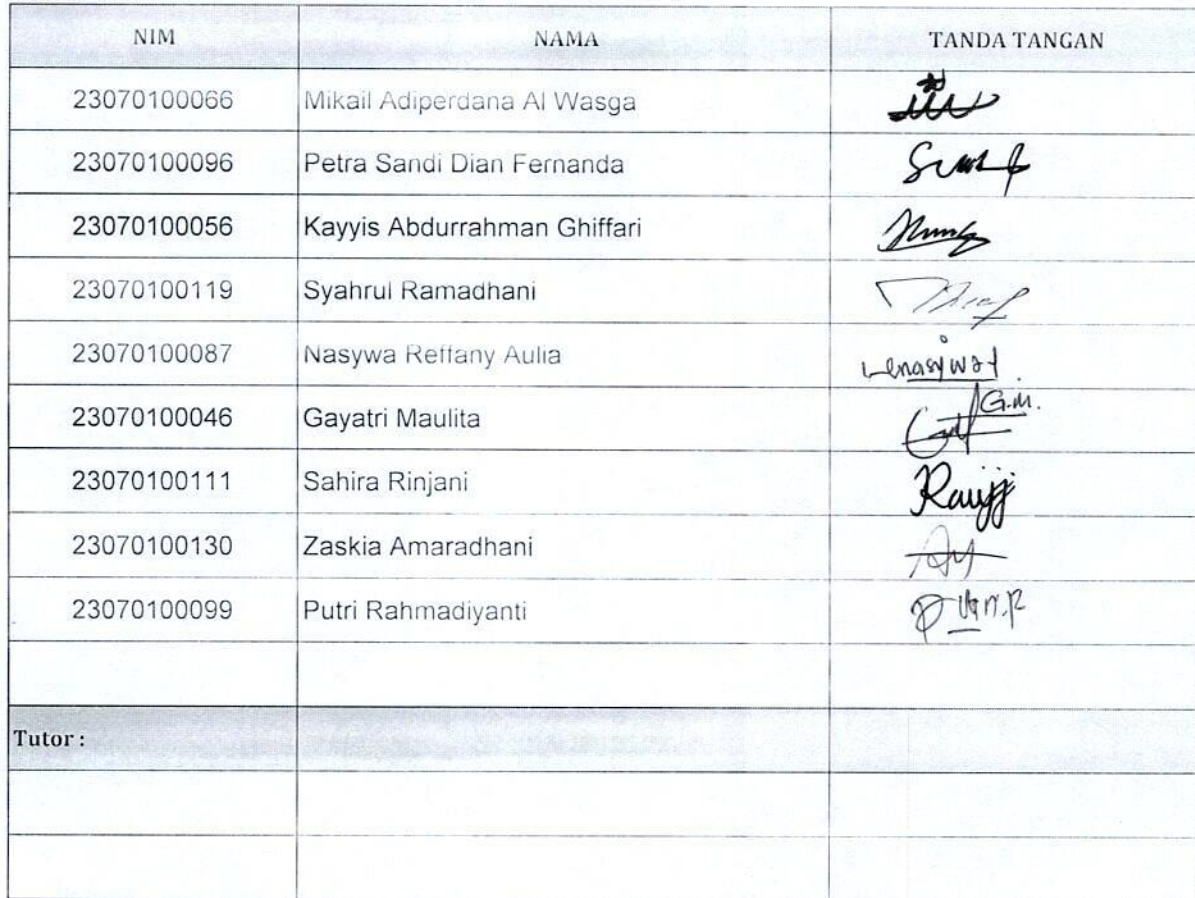 NIM NAMA TANDA TANGAN
23070100066 Mikail Adiperdana Al Wasga
23070100096 Petra Sandi Dian Fernanda
23070100056 Kayyis Abdurrahman Ghiffari
23070100119 Syahrul Ramadhani
23070100087 Nasywa Reffany Aulia
23070100046 Gayatri Maulita G.M.
23070100111 Sahira Rinjani
23070100130 Zaskia Amaradhani
23070100099 Putri Rahmadiyanti
Tutor :